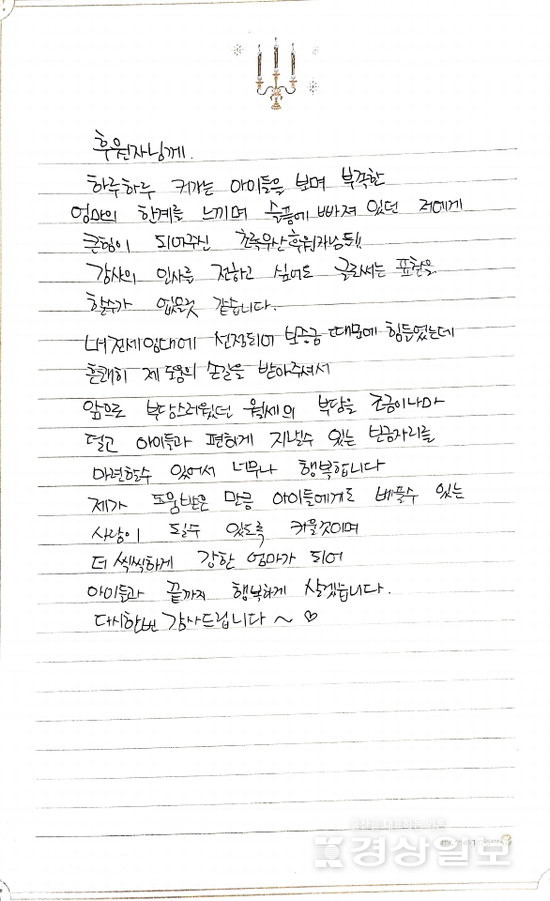 후원자님께.
하루하루 커가는 아이들을 보며 부족한
엄마의 한계를 느끼며 슬픔에 빠져 있던 저에게
큰힘이 되어주신 초록우산후원자님들!!
감사의 인사를 전하고 싶어도 글로써는 표현을
할수가 없을것 같습니다.
LH전세임대에 선정되어 보증금 때문에 힘들었는데
흔쾌히 제 도움의 손길을 받아주셔서
앞으로 부담스러웠던 월세의 부담을 조금이나마
덜고 아이들과 편하게 지낼수 있는 보금자리를
마련할수 있어서 너무나 행복합니다
제가 도움받은 만큼 아이들에게도 베풀수 있는
사랑이 될수 있도록 키울것이며
더 씩씩하게 강한 엄마가 되어
아이들과 끝까지 행복하게 살겠습니다.
다시한번 감사드립니다 ~ ♡
경상일보